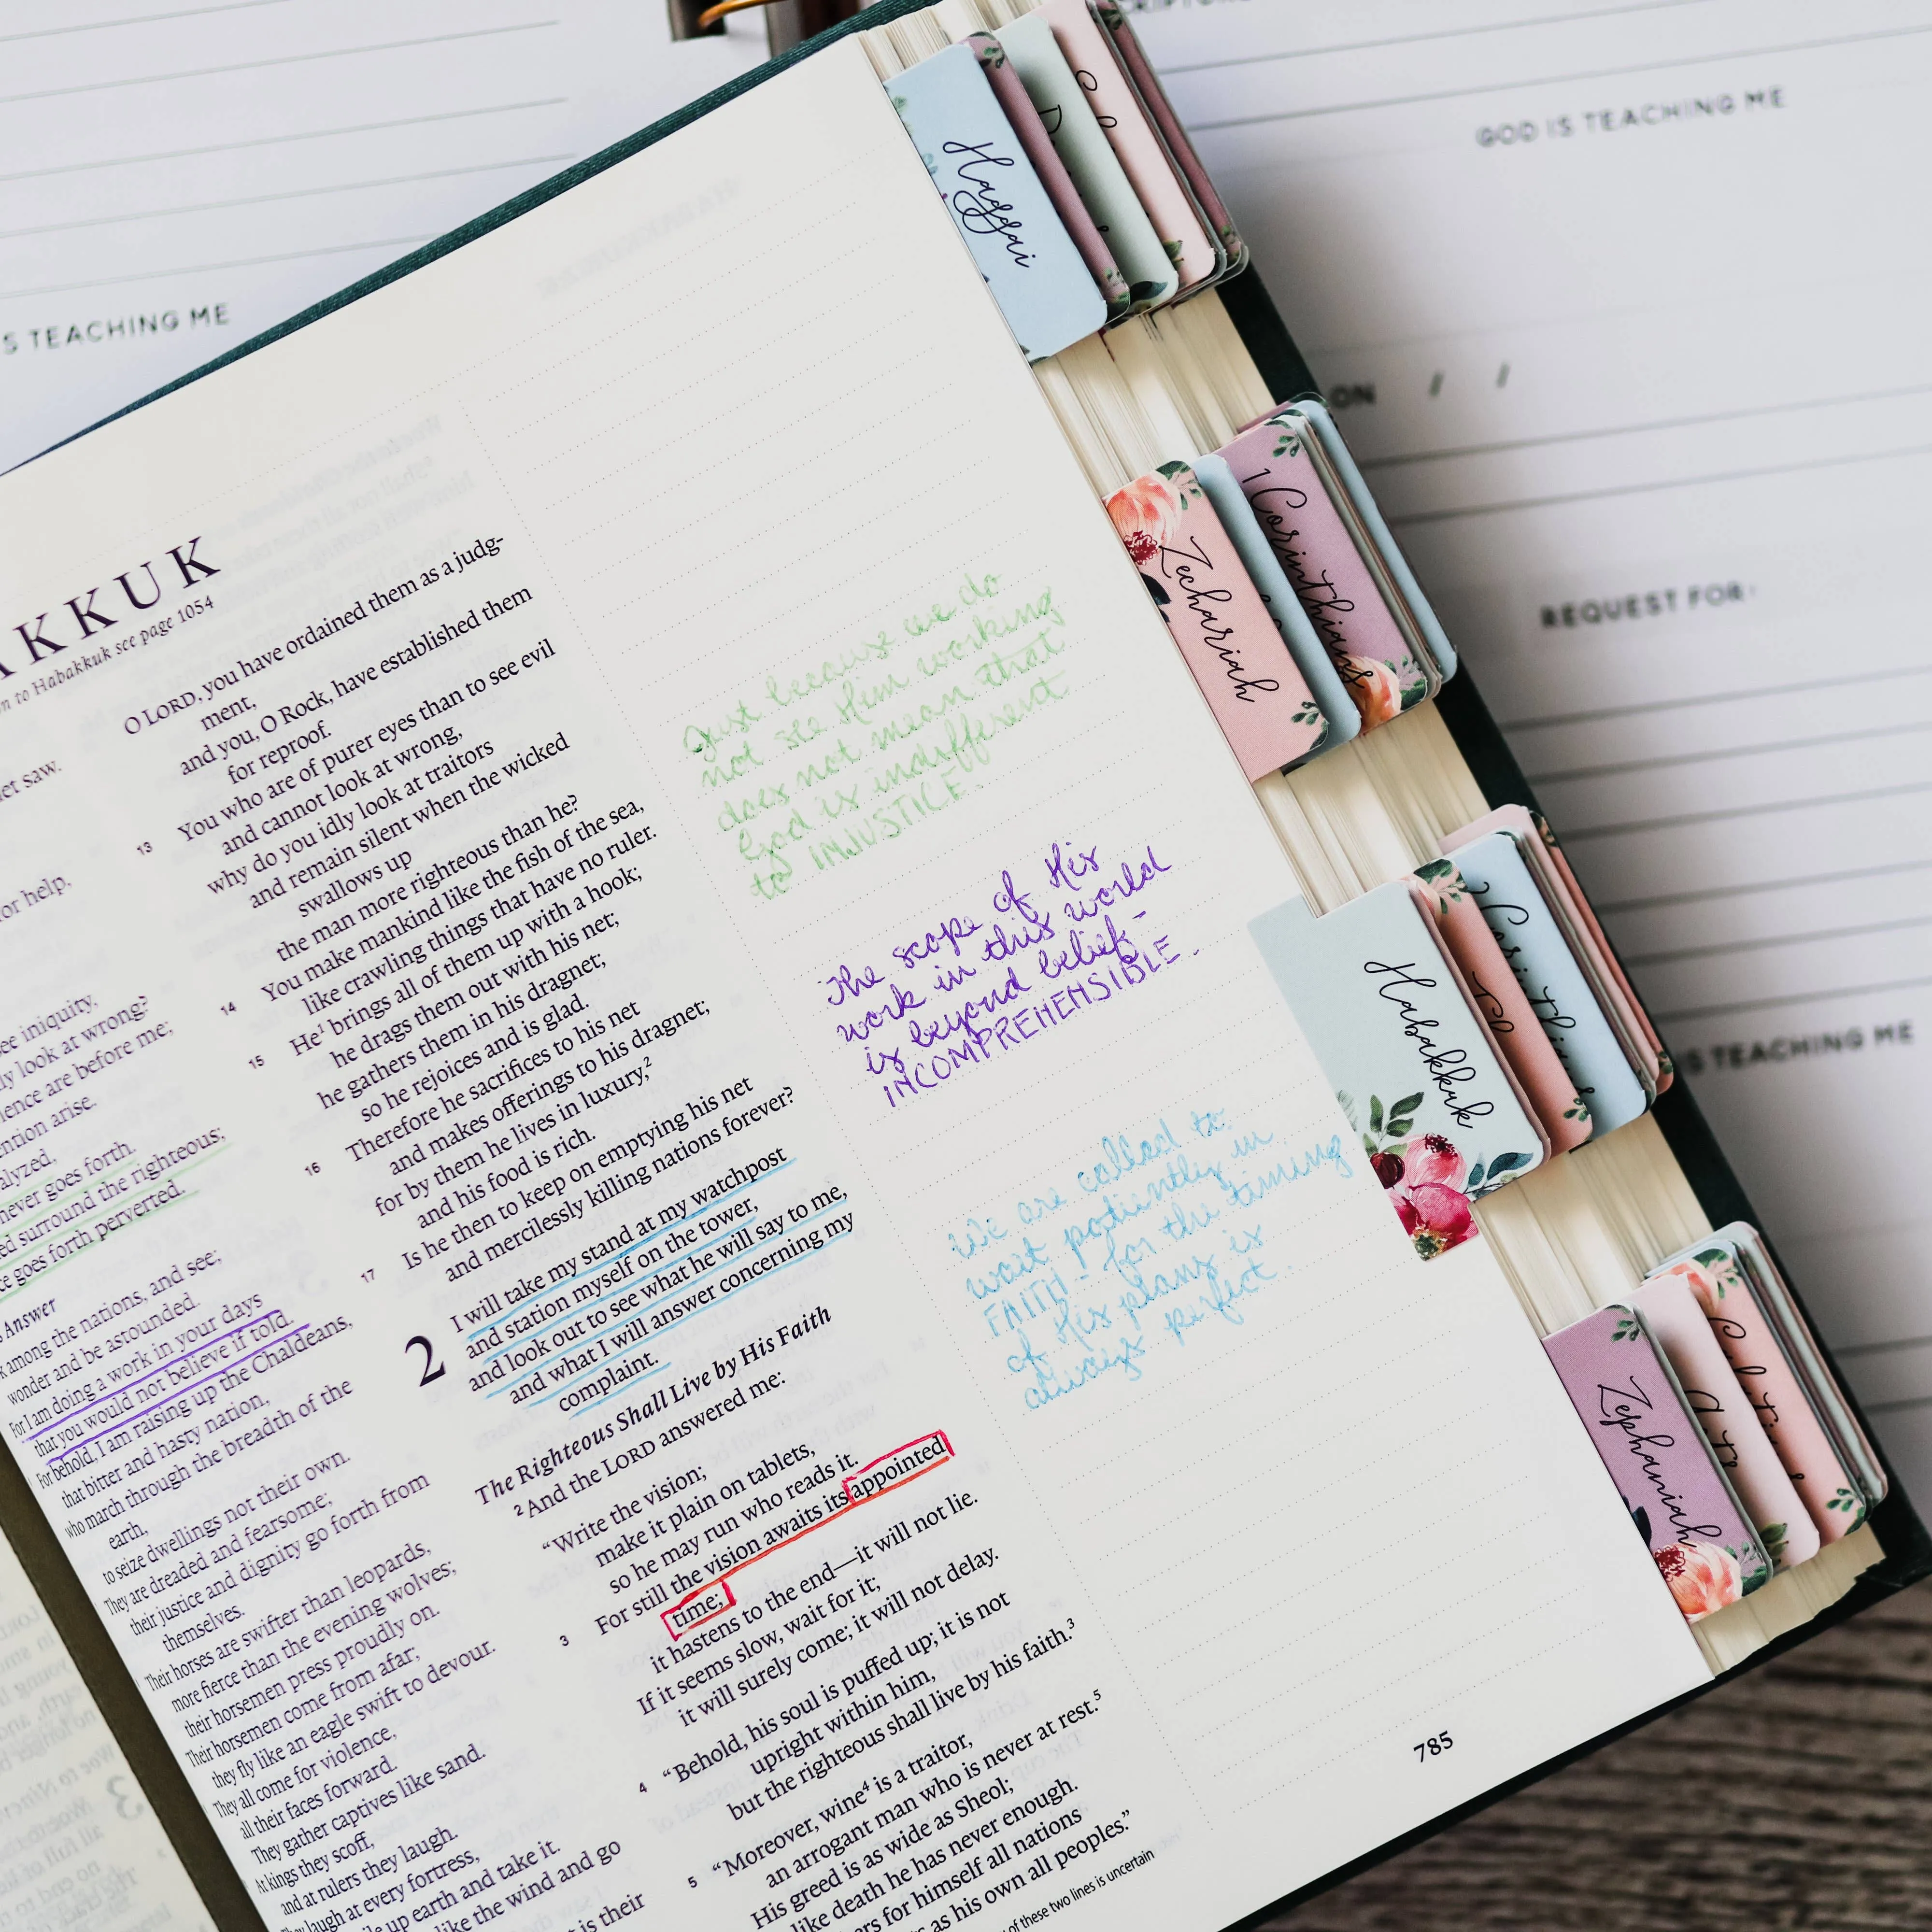 SCRIPTURE
GOD IS TEACHING ME
S TEACHING ME
ON / /
REQUEST FOR:
IS TEACHING ME
AKKUK
n to Habakkuk see page 1054
et saw.
or help,
ee iniquity,
ly look at wrong?
lence are before me;
ention arise.
alyzed,
never goes forth.
ed surround the righteous;
ce goes forth perverted.
Answer
k among the nations, and see;
wonder and be astounded.
For I am doing a work in your days
that you would not believe if told.
For behold, I am raising up the Chaldeans,
that bitter and hasty nation,
who march through the breadth of the
earth,
to seize dwellings not their own.
They are dreaded and fearsome;
their justice and dignity go forth from
themselves.
Their horses are swifter than leopards,
more fierce than the evening wolves;
their horsemen press proudly on.
Their horsemen come from afar;
they fly like an eagle swift to devour.
They all come for violence,
all their faces forward.
They gather captives like sand.
At kings they scoff,
and at rulers they laugh.
They laugh at every fortress,
le up earth and take it.
like the wind and go
t is their
O LORD, you have ordained them as a judg-
ment,
and you, O Rock, have established them
for reproof.
13 You who are of purer eyes than to see evil
and cannot look at wrong,
why do you idly look at traitors
and remain silent when the wicked
swallows up
the man more righteous than he?
14 You make mankind like the fish of the sea,
like crawling things that have no ruler.
15 He¹ brings all of them up with a hook;
he drags them out with his net;
he gathers them in his dragnet;
so he rejoices and is glad.
16 Therefore he sacrifices to his net
and makes offerings to his dragnet;
for by them he lives in luxury,²
and his food is rich.
17 Is he then to keep on emptying his net
and mercilessly killing nations forever?
2 I will take my stand at my watchpost
and station myself on the tower,
and look out to see what he will say to me,
and what I will answer concerning my
complaint.
The Righteous Shall Live by His Faith
2 And the LORD answered me:
“Write the vision;
make it plain on tablets,
so he may run who reads it.
3 For still the vision awaits its appointed
time;
it hastens to the end—it will not lie.
If it seems slow, wait for it;
it will surely come; it will not delay.
4 “Behold, his soul is puffed up; it is not
upright within him,
but the righteous shall live by his faith.³
5 “Moreover, wine⁴ is a traitor,
an arrogant man who is never at rest.⁵
His greed is as wide as Sheol;
like death he has never enough.
ers for himself all nations
s as his own all peoples.”
of these two lines is uncertain
Just because we do
not see Him working
does not mean that
God is indifferent
to INJUSTICE.
The scope of His
work in this world
is beyond belief -
INCOMPREHENSIBLE.
We are called to
wait patiently in
FAITH - for the timing
of His plans is
always perfect.
785
Haggai
Zechariah
1 Corinthians
Habakkuk
2 Corinthians
Zephaniah